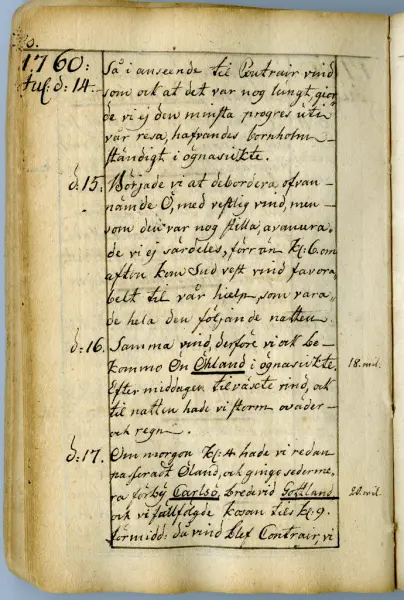 8.
1760:
Jul: d: 14. Så i anseende til Contrair vind
som ock at det var nog lungt, gior
de vi ej den minsta progres uti
vår resa, hafvandes bornholm
ständigt i ögnasickte.
d: 15. Började vi at debordera ofvan
nämde Ö, med vestlig vind, men
som den var nog stilla, avancera,,
de vi ej särdeles, förr än Kl: 6. om
afton kom Sud vest vind favora
belt til vår hielp, som vara,,
de hela den följande natten.
d: 16. Samma vind, derföre vi ock be-
kommo Ön Öhland i ögnasickte, 18. mil.
Efter middagen tilväxte vind, ock
til natten hade vi storm oväder
ock regn.
d: 17. Om morgon Kl: 4 hade vi redan
passeradt Öland, ock ginge sederme,
ra förbij Carlsö, bredvid Gottland 20. mil.
ock vi fullfölgde kosan tils Kl: 9.
förmidd: då vind blef Contrair, vi